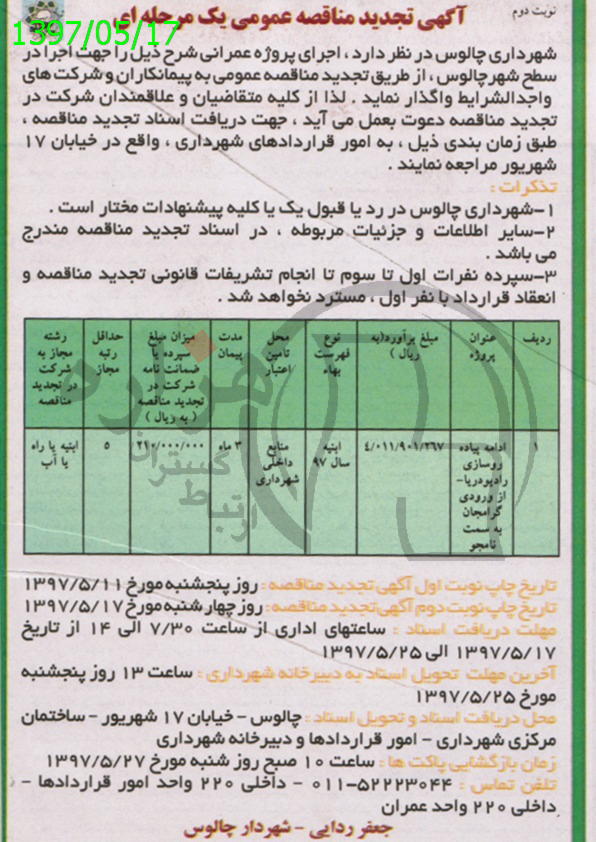 نوبت دوم
آگهی تجدید مناقصه عمومی یک مرحله ای
1397/05/17
شهرداری چالوس در نظر دارد ، اجرای پروژه عمرانی شرح ذیل را جهت اجرا در
سطح شهر چالوس ، از طریق تجدید مناقصه عمومی به پیمانکاران و شرکت های
واجدالشرایط واگذار نماید . لذا از کلیه متقاضیان و علاقمندان شرکت در
تجدید مناقصه دعوت بعمل می آید ، جهت دریافت اسناد تجدید مناقصه ،
طبق زمان بندی ذیل ، به امور قراردادهای شهرداری ، واقع در خیابان ۱۷
شهریور مراجعه نمایند .
تذکرات :
۱-شهرداری چالوس در رد یا قبول یک یا کلیه پیشنهادات مختار است .
۲-سایر اطلاعات و جزئیات مربوطه ، در اسناد تجدید مناقصه مندرج
می باشد .
۳-سپرده نفرات اول تا سوم تا انجام تشریفات قانونی تجدید مناقصه و
انعقاد قرارداد با نفر اول ، مسترد نخواهد شد .
ردیف
عنوان
پروژه
مبلغ برآورد(به
ریال )
نوع
فهرست
بهاء
محل
تامین
اعتبار
مدت
پیمان
میزان مبلغ
سپرده یا
ضمانت نامه
شرکت در
تجدید مناقصه
( به ریال )
حداقل
رتبه
مجاز
رشته
مجاز به
شرکت
در تجدید
مناقصه
۱
ادامه پیاده
روسازی
رادیودریا-
از ورودی
گرامجان
به سمت
نامجو
۴/۰۱۱/۹۰۱/۲۶۷
ابنیه
سال ۹۷
منابع
داخلی
شهرداری
۳ ماه
۲۱۰/۰۰۰/۰۰۰
۵
ابنیه یا راه
یا آب
هزاره
گستران
ارتباط
تاریخ چاپ نوبت اول آگهی تجدید مناقصه : روز پنجشنبه مورخ ۱۳۹۷/۵/۱۱
تاریخ چاپ نوبت دوم آگهی تجدید مناقصه : روز چهارشنبه مورخ ۱۳۹۷/۵/۱۷
مهلت دریافت اسناد : ساعتهای اداری از ساعت ۷/۳۰ الی ۱۴ از تاریخ
۱۳۹۷/۵/۱۷ الی ۱۳۹۷/۵/۲۵
آخرین مهلت تحویل اسناد به دبیرخانه شهرداری : ساعت ۱۳ روز پنجشنبه
مورخ ۱۳۹۷/۵/۲۵
محل دریافت اسناد و تحویل اسناد : چالوس - خیابان ۱۷ شهریور - ساختمان
مرکزی شهرداری - امور قراردادها و دبیرخانه شهرداری
زمان بازگشایی پاکت ها : ساعت ۱۰ صبح روز شنبه مورخ ۱۳۹۷/۵/۲۷
تلفن تماس : ۵۲۲۲۳۰۴۴-۰۱۱ - داخلی ۲۲۰ واحد امور قراردادها -
داخلی ۲۲۰ واحد عمران
جعفر ردایی - شهردار چالوس